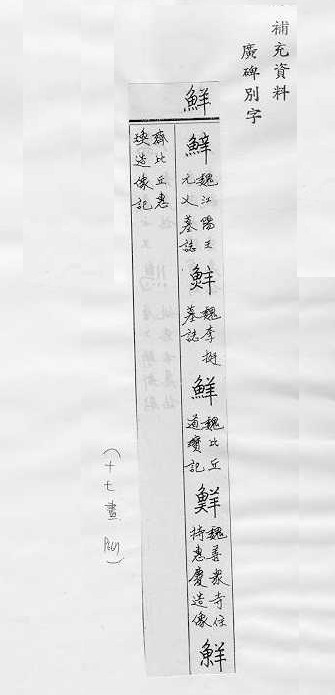 補充資料
廣碑別字
鮮
鮮 魏江陽王元乂墓誌
鮮 魏李挺墓誌
鮮 魏比丘道瓊記
鮮 魏善衆寺住持惠慶造像
鮮
齊比丘惠瑍造像記
（十七畫 P601）